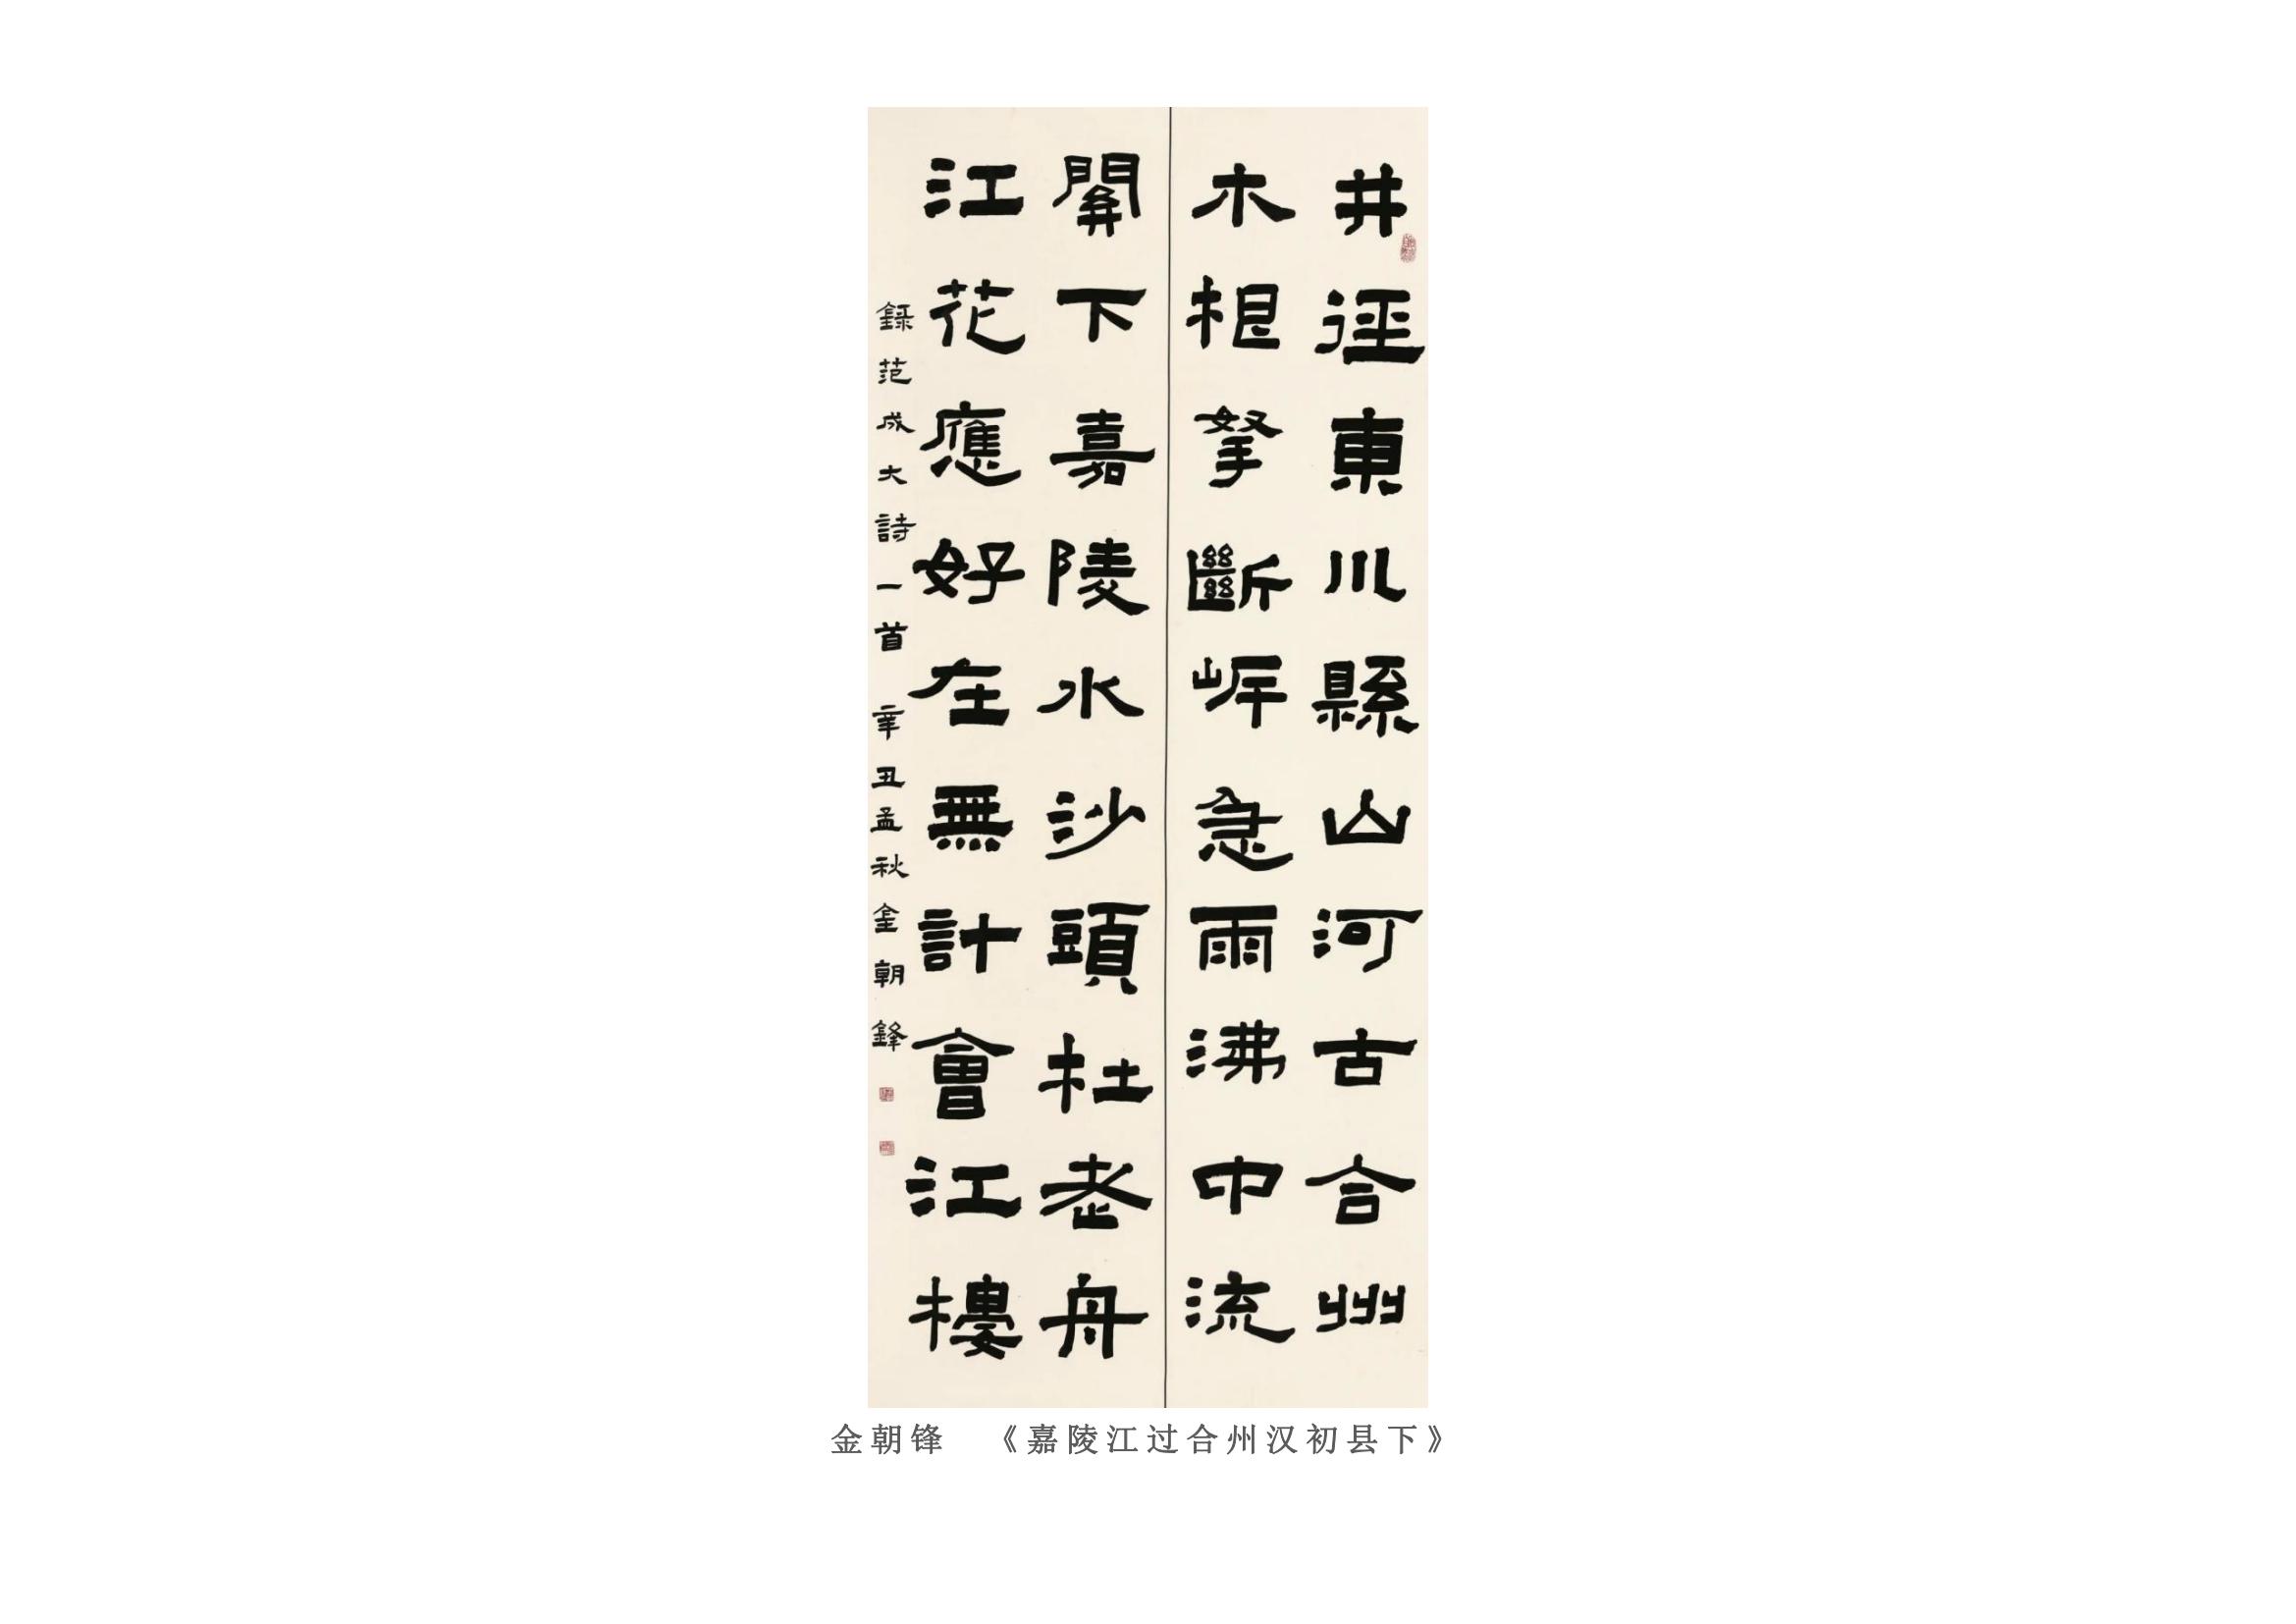 井徑東川縣山河古合州
木根拏斷岸急雨沸中流
關下嘉陵水沙頭杜老舟
江花應好在無計會江樓
錄范成大詩一首 辛丑孟秋金朝鋒
金朝锋 《嘉陵江过合州汉初县下》